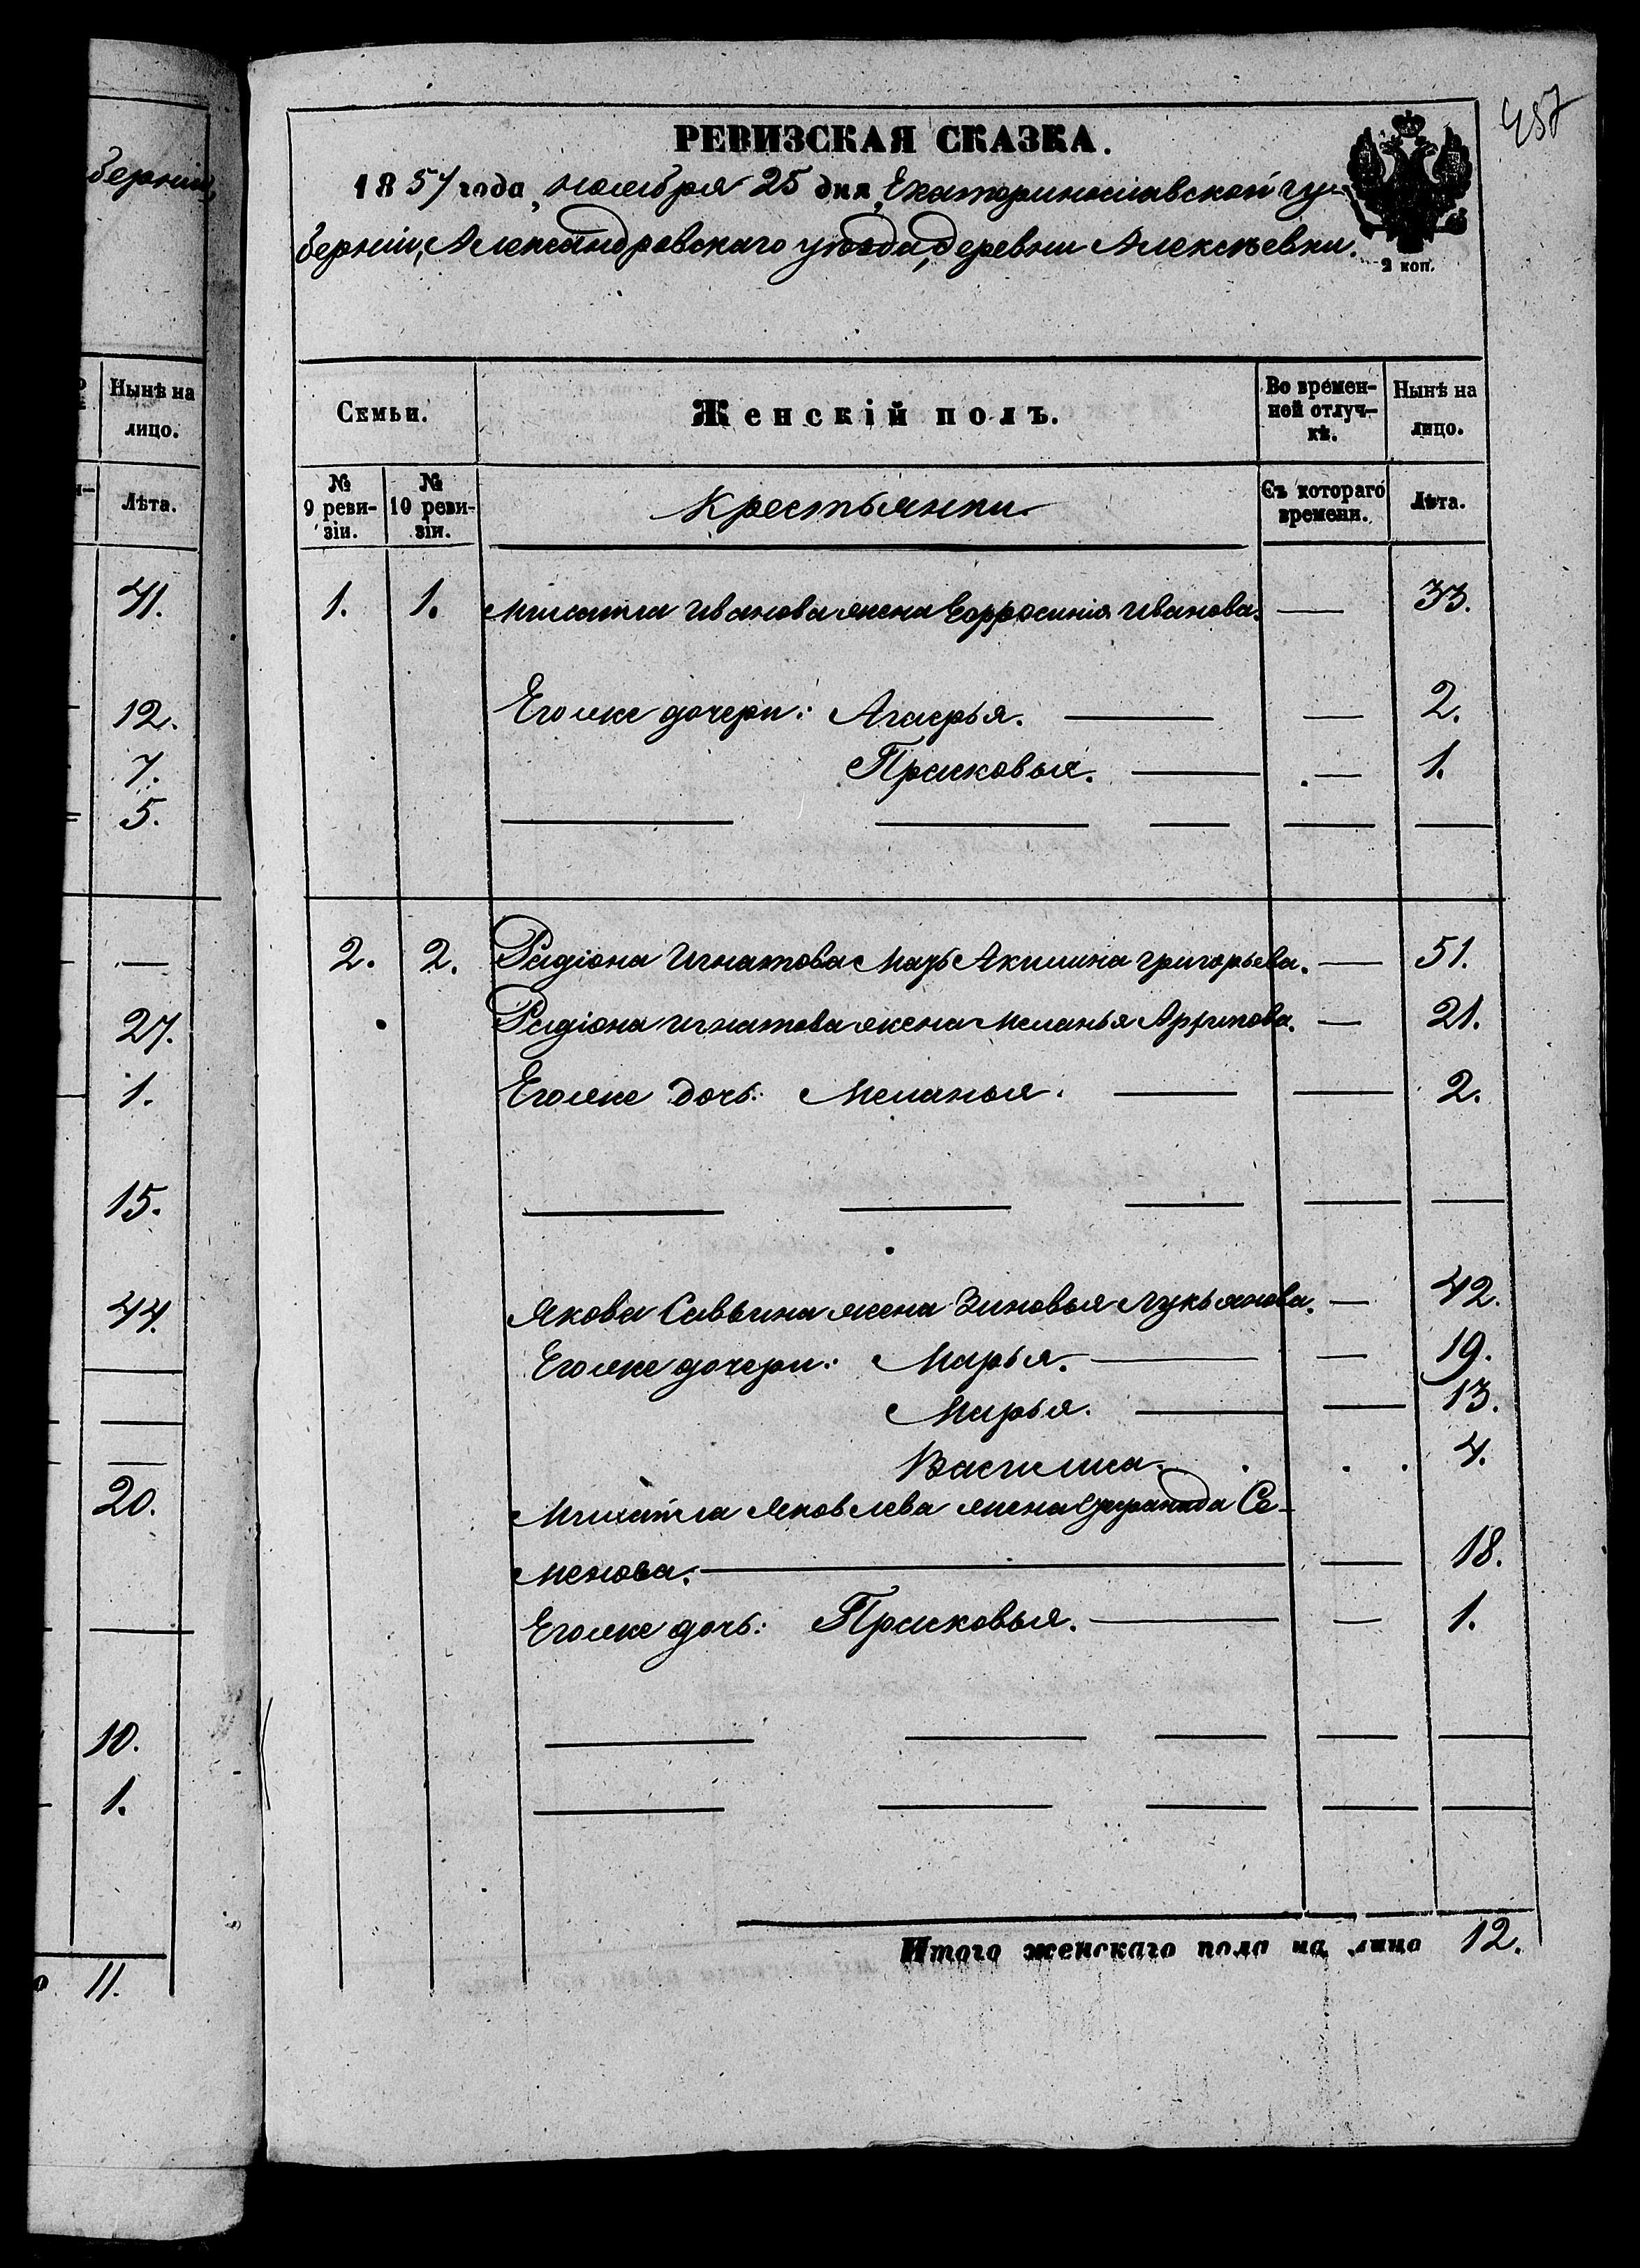 берніи,
Нынѣ на
лицо.
Лѣта.
41.
12.
7.
5.
27.
1.
15.
44.
20.
10.
1.
11.
457
РЕВИЗСКАЯ СКАЗКА.
1857 года, ноября 25 дня, Екатеринославской гу-
берніи, Александровскаго уѣзда, деревни Алексѣевки.
2 коп.
Семьи.
Женскій полъ.
Во времен-
ной отлуч-
кѣ.
Нынѣ на
лицо.
№
9 реви-
зіи.
№
10 реви-
зіи.
Крестьянки
Съ котораго
времени.
Лѣта.
1. 1. Михайла Иванова жена Ефросинія Иванова. — 33.
Его же дочери: Агафья. — — 2.
Прасковья. — — 1.
2. 2. Радіона Игнатова Мать Акилина Григорьева. — 51.
Радіона Игнатова жена Меланья Архипова. — 21.
Его же дочь: Меланья. — — 2.
Якова Саввина жена Зиновья Лукьянова. — 42.
Его же дочери: Марья. — — 19.
Марья. — — 13.
Василиса. 4.
Михайла Яковлева жена Се-
менова. — — 18.
Его же дочь: Прасковья. — — 1.
Итого женскаго пола на лицо 12.